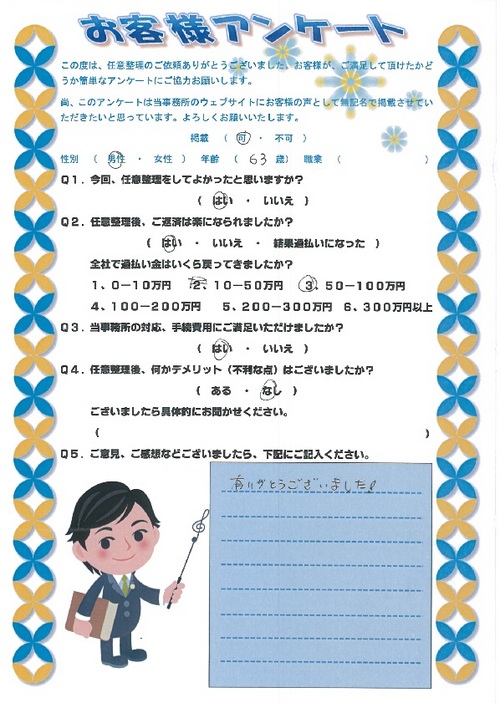 お客様アンケート
この度は、任意整理のご依頼ありがとうございました。お客様が、ご満足して頂けたかど
うか簡単なアンケートにご協力お願いします。
尚、このアンケートは当事務所のウェブサイトにお客様の声として無記名で掲載させてい
ただきたいと思っています。よろしくお願いいたします。
掲載 ( 可 ・ 不可 )
性別 ( 男性 ・ 女性 ) 年齢 ( 63 歳) 職業 ( )
Q1．今回、任意整理をしてよかったと思いますか?
( はい ・ いいえ )
Q2．任意整理後、ご返済は楽になられましたか?
( はい ・ いいえ ・ 結果過払いになった )
全社で過払い金はいくら戻ってきましたか?
1、0－10万円 2、10－50万円 3、50－100万円
4、100－200万円 5、200－300万円 6、300万円以上
Q3．当事務所の対応、手続費用にご満足いただけましたか?
( はい ・ いいえ )
Q4．任意整理後、何かデメリット（不利な点）はございましたか?
( ある ・ なし )
ございましたら具体的にお聞かせください。
( )
Q5．ご意見、ご感想などございましたら、下記にご記入ください。
有りがとうございました!